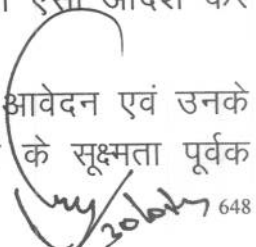 ऐसा आदेश कर
आवेदन एवं उनके
के सूक्ष्मता पूर्वक
648